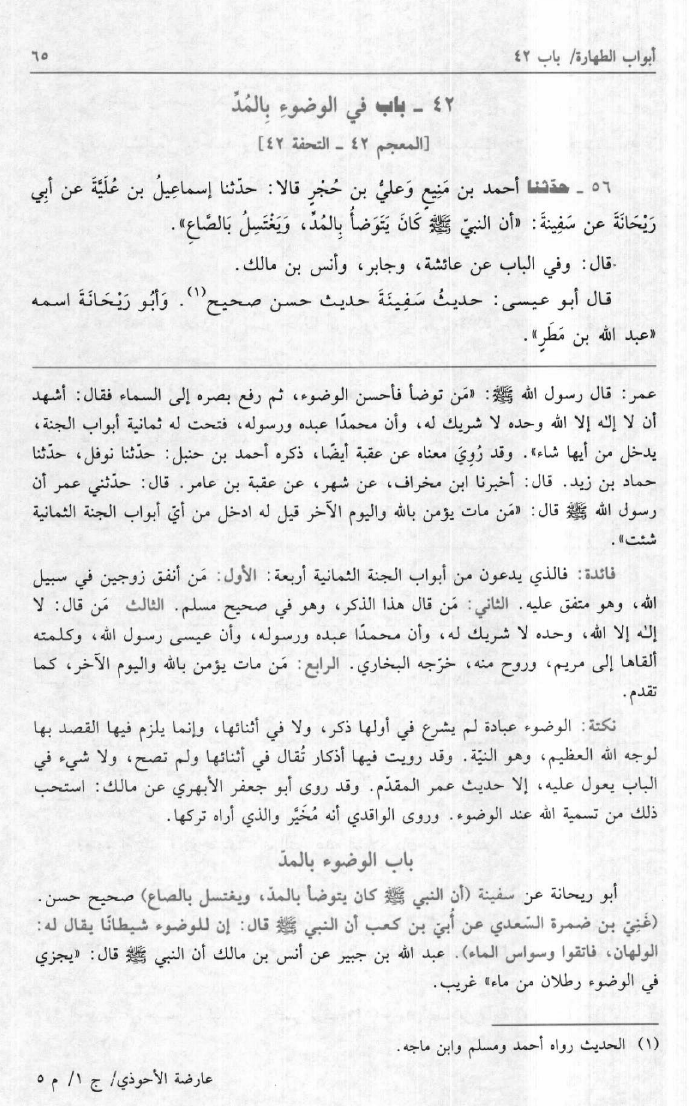 أبواب الطهارة/ باب ٤٢
٦٥
٤٢ ـ باب في الوضوءِ بِالمُدِّ
[المعجم ٤٢ ـ التحفة ٤٢]
٥٦ ـ حدّثنا أحمد بن مَنِيعٍ وَعليُّ بن حُجْرٍ قالا: حدّثنا إسماعِيلُ بن عُلَيَّةَ عن أبِي
رَيْحَانَةَ عن سَفِينةَ: «أن النبيّ ﷺ كَانَ يَتَوَضأُ بِالمُدِّ، وَيَغْتَسِلُ بَالصَّاعِ».
قال: وفي الباب عن عائشة، وجابر، وأنس بن مالك.
قال أبو عيسى: حديثُ سَفِينَةَ حديث حسن صحيح(١). وَأبُو رَيْحَانَةَ اسمه
«عبد الله بن مَطَرٍ».
عمر: قال رسول الله ﷺ: «مَن توضأ فأحسن الوضوء، ثم رفع بصره إلى السماء فقال: أشهد
أن لا إلٰه إلا الله وحده لا شريك له، وأن محمدًا عبده ورسوله، فتحت له ثمانية أبواب الجنة،
يدخل من أيها شاء». وقد رُوِيَ معناه عن عقبة أيضًا، ذكره أحمد بن حنبل: حدّثنا نوفل، حدّثنا
حماد بن زيد. قال: أخبرنا ابن مخراف، عن شهر، عن عقبة بن عامر. قال: حدّثني عمر أن
رسول الله ﷺ قال: «مَن مات يؤمن بالله واليوم الآخر قيل له ادخل من أيّ أبواب الجنة الثمانية
شئت».
فائدة: فالذي يدعون من أبواب الجنة الثمانية أربعة: الأول: مَن أنفق زوجين في سبيل
الله، وهو متفق عليه. الثاني: مَن قال هذا الذكر، وهو في صحيح مسلم. الثالث مَن قال: لا
إلٰه إلا الله، وحده لا شريك له، وأن محمدًا عبده ورسوله، وأن عيسى رسول الله، وكلمته
ألقاها إلى مريم، وروح منه، خرّجه البخاري. الرابع: مَن مات يؤمن بالله واليوم الآخر، كما
تقدم.
نكتة: الوضوء عبادة لم يشرع في أولها ذكر، ولا في أثنائها، وإنما يلزم فيها القصد بها
لوجه الله العظيم، وهو النيّة. وقد رويت فيها أذكار تُقال في أثنائها ولم تصح، ولا شيء في
الباب يعول عليه، إلا حديث عمر المقدّم. وقد روى أبو جعفر الأبهري عن مالك: استحب
ذلك من تسمية الله عند الوضوء. وروى الواقدي أنه مُخَيَّر والذي أراه تركها.
باب الوضوء بالمدّ
أبو ريحانة عن سفينة (أن النبي ﷺ كان يتوضأ بالمدّ، ويغتسل بالصاع) صحيح حسن.
(غَنِيّ بن ضمرة السّعدي عن أُبيّ بن كعب أن النبي ﷺ قال: إن للوضوء شيطانًا يقال له:
الولهان، فاتقوا وسواس الماء). عبد الله بن جبير عن أنس بن مالك أن النبي ﷺ قال: «يجزي
في الوضوء رطلان من ماء» غريب.
(١) الحديث رواه أحمد ومسلم وابن ماجه.
عارضة الأحوذي/ ج ١/ م ٥